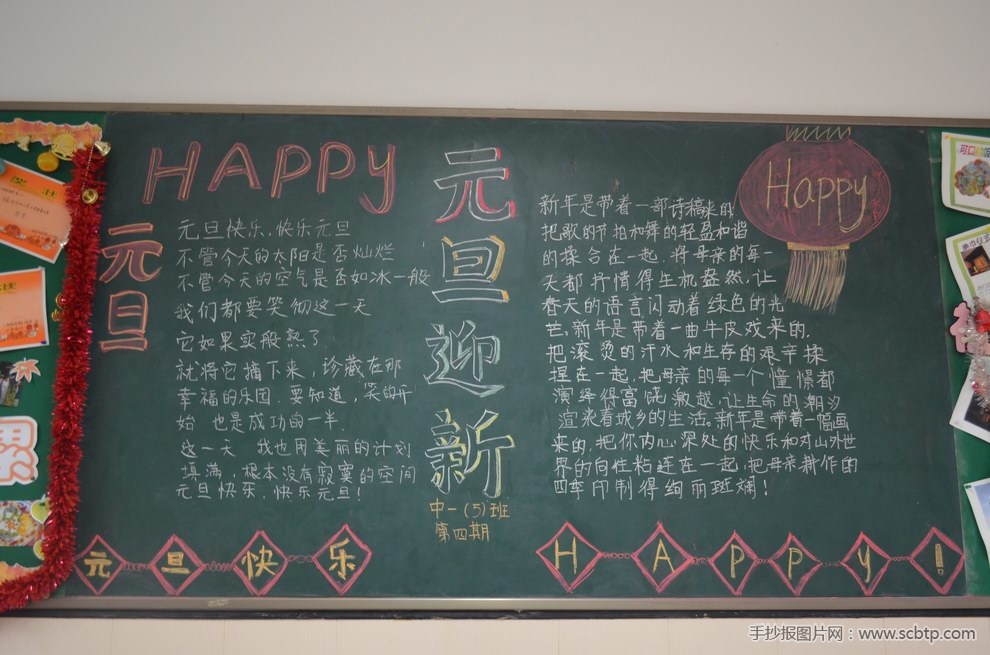 HAPPY
元旦
元旦快乐、快乐元旦
不管今天的太阳是否灿烂
不管今天的空气是否如冰一般
我们都要笑彻这一天
它如果实般熟了
就将它摘下来，珍藏在那
幸福的乐园。要知道，笑的开
始 也是成功的一半.
这一天 我也用美丽的计划
填满，根本没有寂寞的空间
元旦快乐，快乐元旦！
元旦迎新
中一(5)班
第四期
新年是带着一部诗稿来的
把歌的节拍和舞的轻盈和谐
的揉合在一起.将母亲的每一
天都抒情得生机盎然,让
春天的语言闪动着绿色的光
芒.新年是带着一曲牛皮戏来的.
把滚烫的汗水和生存的艰辛揉
捏在一起,把母亲的每一个憧憬都
演绎得富饶激越.让生命的潮汐
渲染着城乡的生活.新年是带着一幅画
来的,把你内心深处的快乐和对山外世
界的向往粘连在一起,把母亲耕作的
四季印制得绚丽斑斓!
Happy
元旦快乐
HAPPy!
可口
手抄报图片网：www.scbtp.com